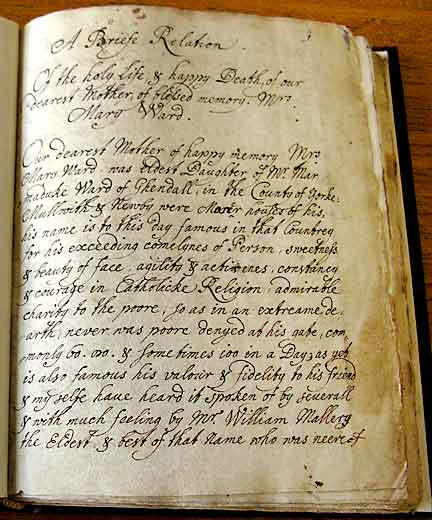 A Briefe Relation
Of the holy life & happy Death, of our
dearest Mother, of blessed memory. Mrs
Mary Ward.
Our dearest Mother of happy memory Mrs
Mary Ward, was eldest Daughter of Mr Mar
maduke Ward of Ghendall, in the County of Yorke:
Mullwith & Newby were Manor houses of his,
his name is to this day famous in that Countrey
for his exceeding comelynes of Person, sweetness
& beauty of face, agility & activenes, constancy
& courage in Catholicke Religion, admirable
charity to the poore, so as in an extreame de,
arth, never was poore denyed at his gate, com,
monly 60. 80. & sometimes 100 in a Day, as yet
is also famous his valour & fidelity to his friend
& my selfe have heard it spoken of by severall
& with much feeling by Mr. William Mallery
the Eldest & best of that name who was neere of